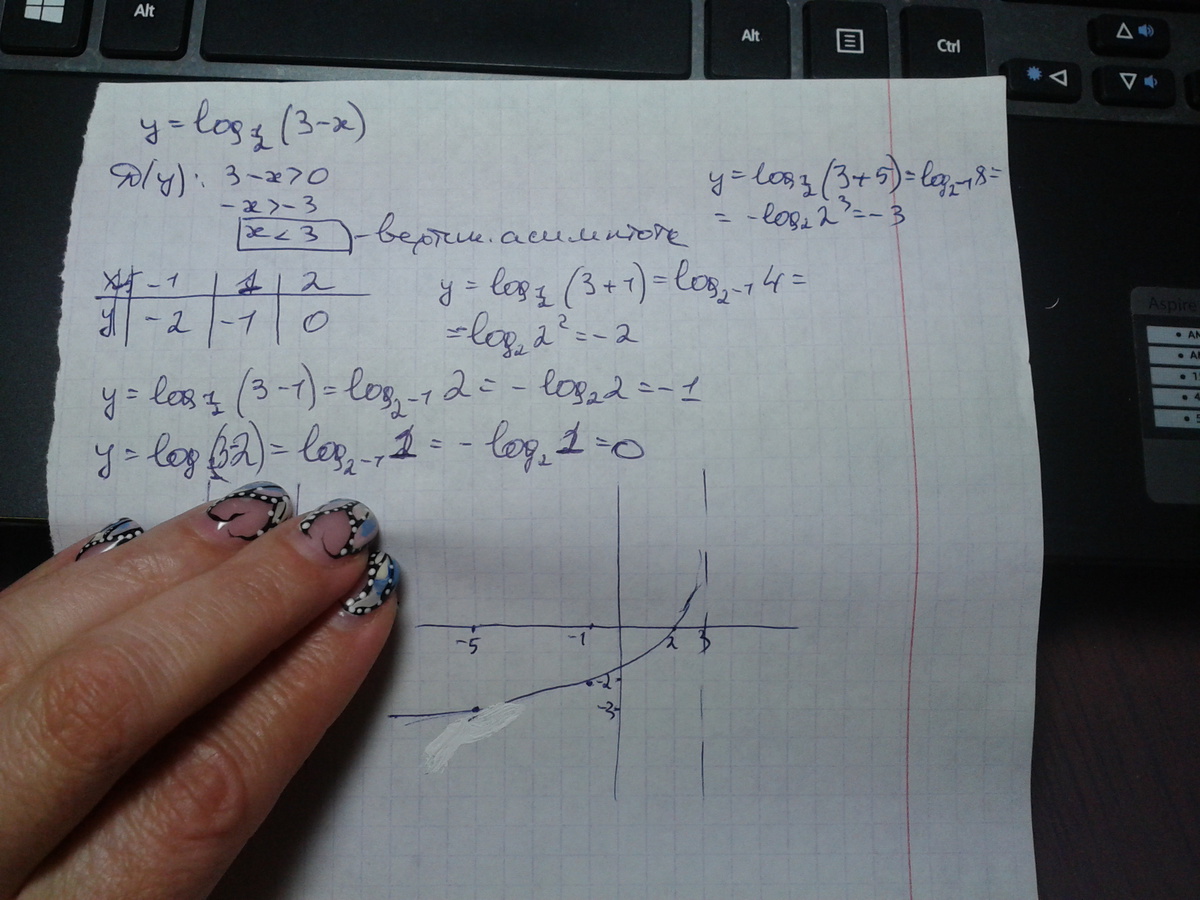 Alt
Alt
Ctrl
y = log_{1/2} (3-x)
D(y): 3-x>0
-x>-3
x<3 - вертик. асимптота
x -1 1 2
y -2 -1 0
y = log_{1/2} (3+5) = log_{2^{-1}} 8 =
= -log_2 2^3 = -3
y = log_{1/2} (3+1) = log_{2^{-1}} 4 =
= -log_2 2^2 = -2
y = log_{1/2} (3-1) = log_{2^{-1}} 2 = - log_2 2 = -1
y = log_{1/2} (3-2) = log_{2^{-1}} 1 = - log_2 1 = 0
-5 -1 2 3
-2
-3
Aspire